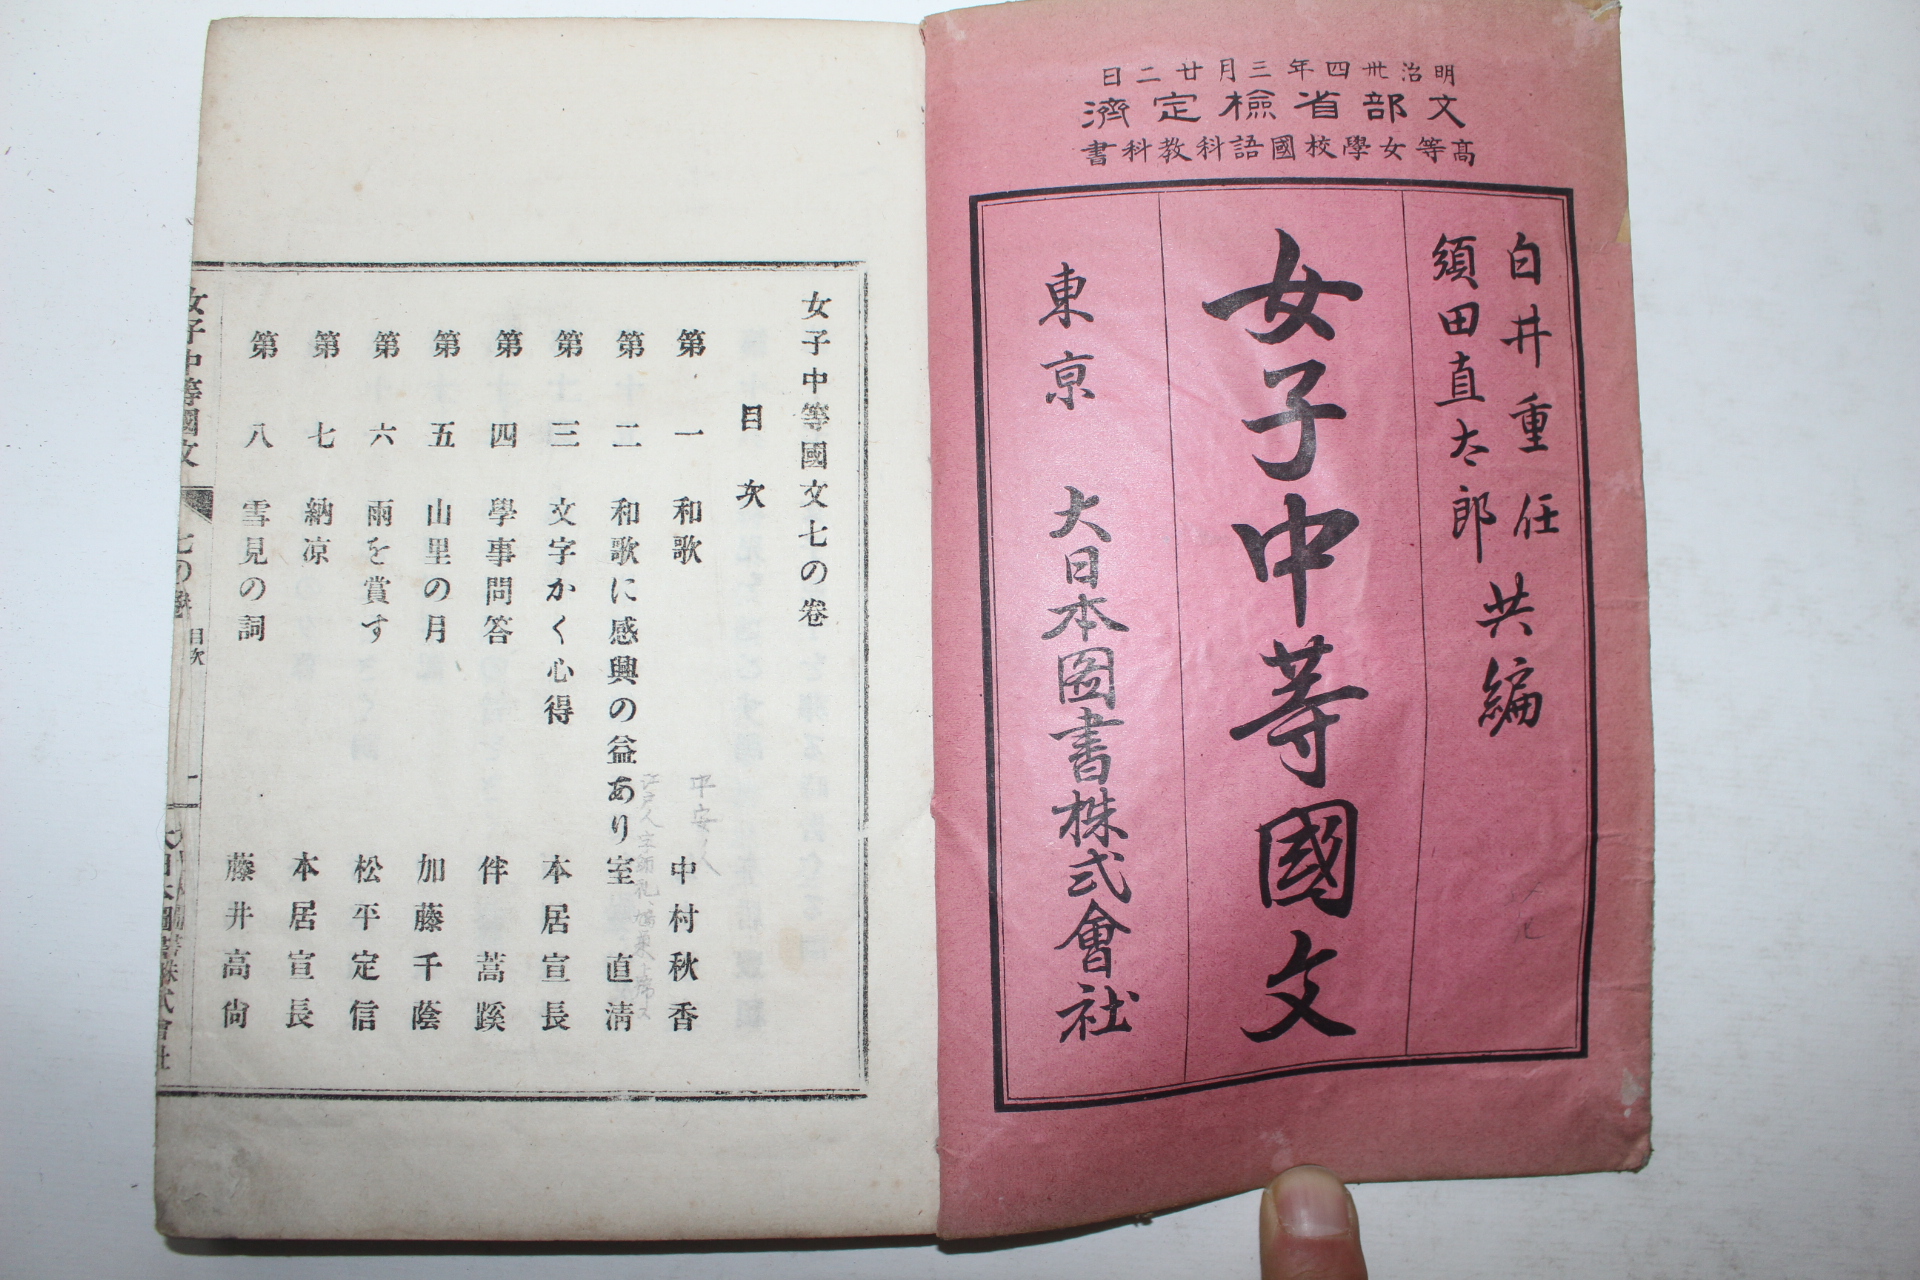 明治卅四年三月廿二日
文部省檢定濟
高等女學校國語科教科書
白井重任
須田直太郎
共編
女子中等國文
東京 大日本圖書株式會社
女子中等國文七の卷
目次
第一 和歌 中村秋香
第二 和歌に感興の益あり 室直淸
第三 文字かく心得 本居宣長
第四 學事問答 伴蒿蹊
第五 山里の月 加藤千蔭
第六 雨を賞す 松平定信
第七 納凉 本居宣長
第八 雪見の詞 藤井高尙
平安ノ人
女子中等國文 七の卷 目次 一 大日本圖書株式會社